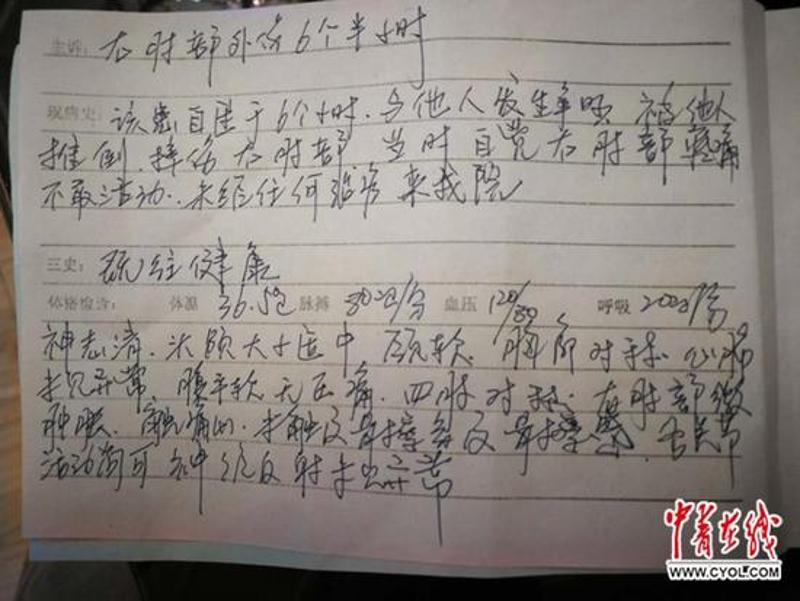 主诉: 右肘部外伤6个半小时
现病史: 该患自述于6个小时. 与他人发生争吵 被他人
推倒. 摔伤右肘部 当时自觉右肘部疼痛
不敢活动. 未经任何治疗来我院
三史: 既往健康
体格检查: 体温 36.5℃ 脉搏 80次/分 血压 120/80 呼吸 20次/分
神志清. 头颅大小适中 颈软. 胸廓对称. 心肺
未见异常. 腹平软无压痛. 四肢对称. 右肘部微
肿胀. 触痛 未触及骨擦 及骨擦 关节
活动尚可 神经反射未 异常
中青在线
WWW.CYOL.COM